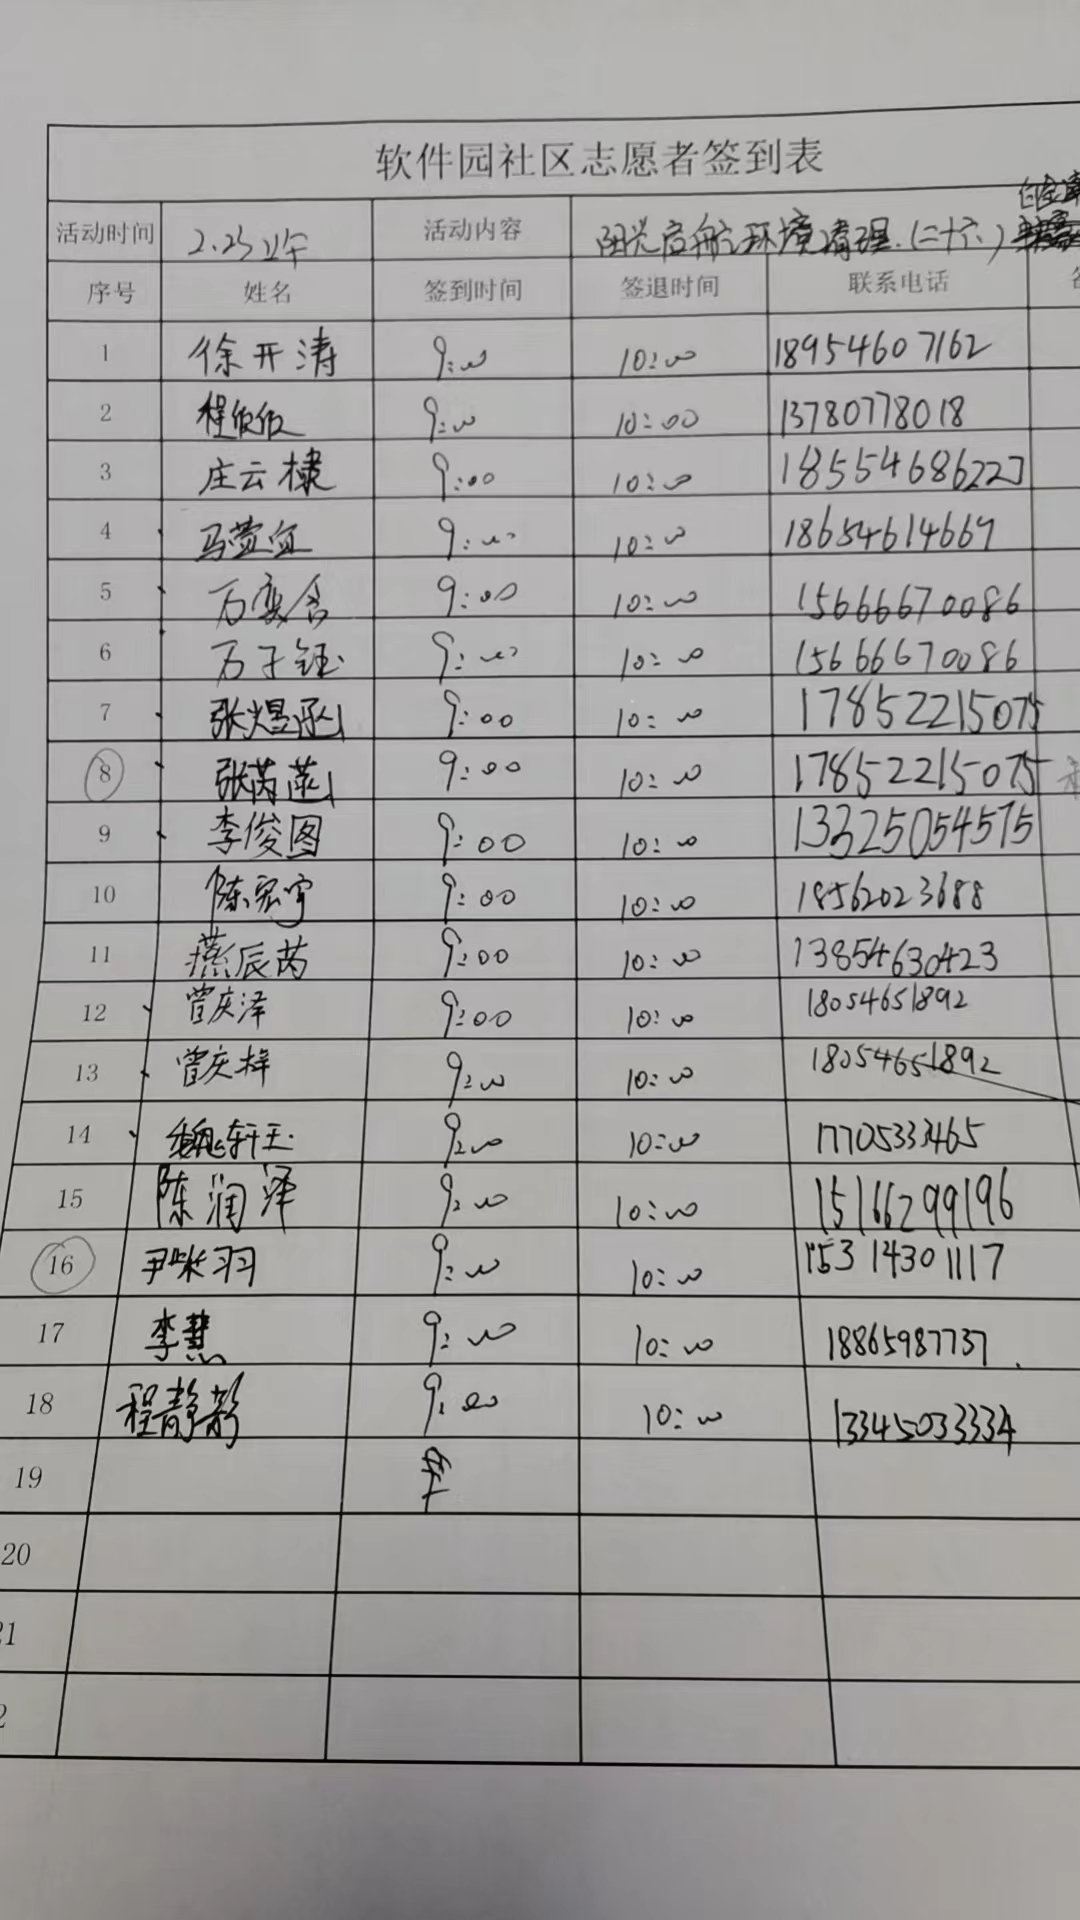 软件园社区志愿者签到表
活动时间 2.23上午 活动内容 阳光启航环境清理.(二十六)
序号 姓名 签到时间 签退时间 联系电话
1 徐开涛 9:00 10:00 18954607162
2 程仮仮 9:00 10:00 13780778018
3 庄云棣 9:00 10:00 18554686227
4 马萱宜 9:00 10:00 18654614669
5 万奕含 9:00 10:00 15666670086
6 万子钰 9:00 10:00 15666670086
7 张煜函 9:00 10:00 17852215075
8 张芮菡 9:00 10:00 17852215075
9 李俊图 9:00 10:00 13325054575
10 陈宏宇 9:00 10:00 18562023688
11 燕辰芮 9:00 10:00 13854630423
12 曾庆泽 9:00 10:00 18054651892
13 曾庆梓 9:00 10:00 18054651892
14 轩玉 9:00 10:00 17705333465
15 陈润泽 9:00 10:00 15166299196
16 尹柴羽 9:00 10:00 15314301117
17 李慧 9:00 10:00 18865987737
18 程静 9:00 10:00 13345033334
19
20
21
2